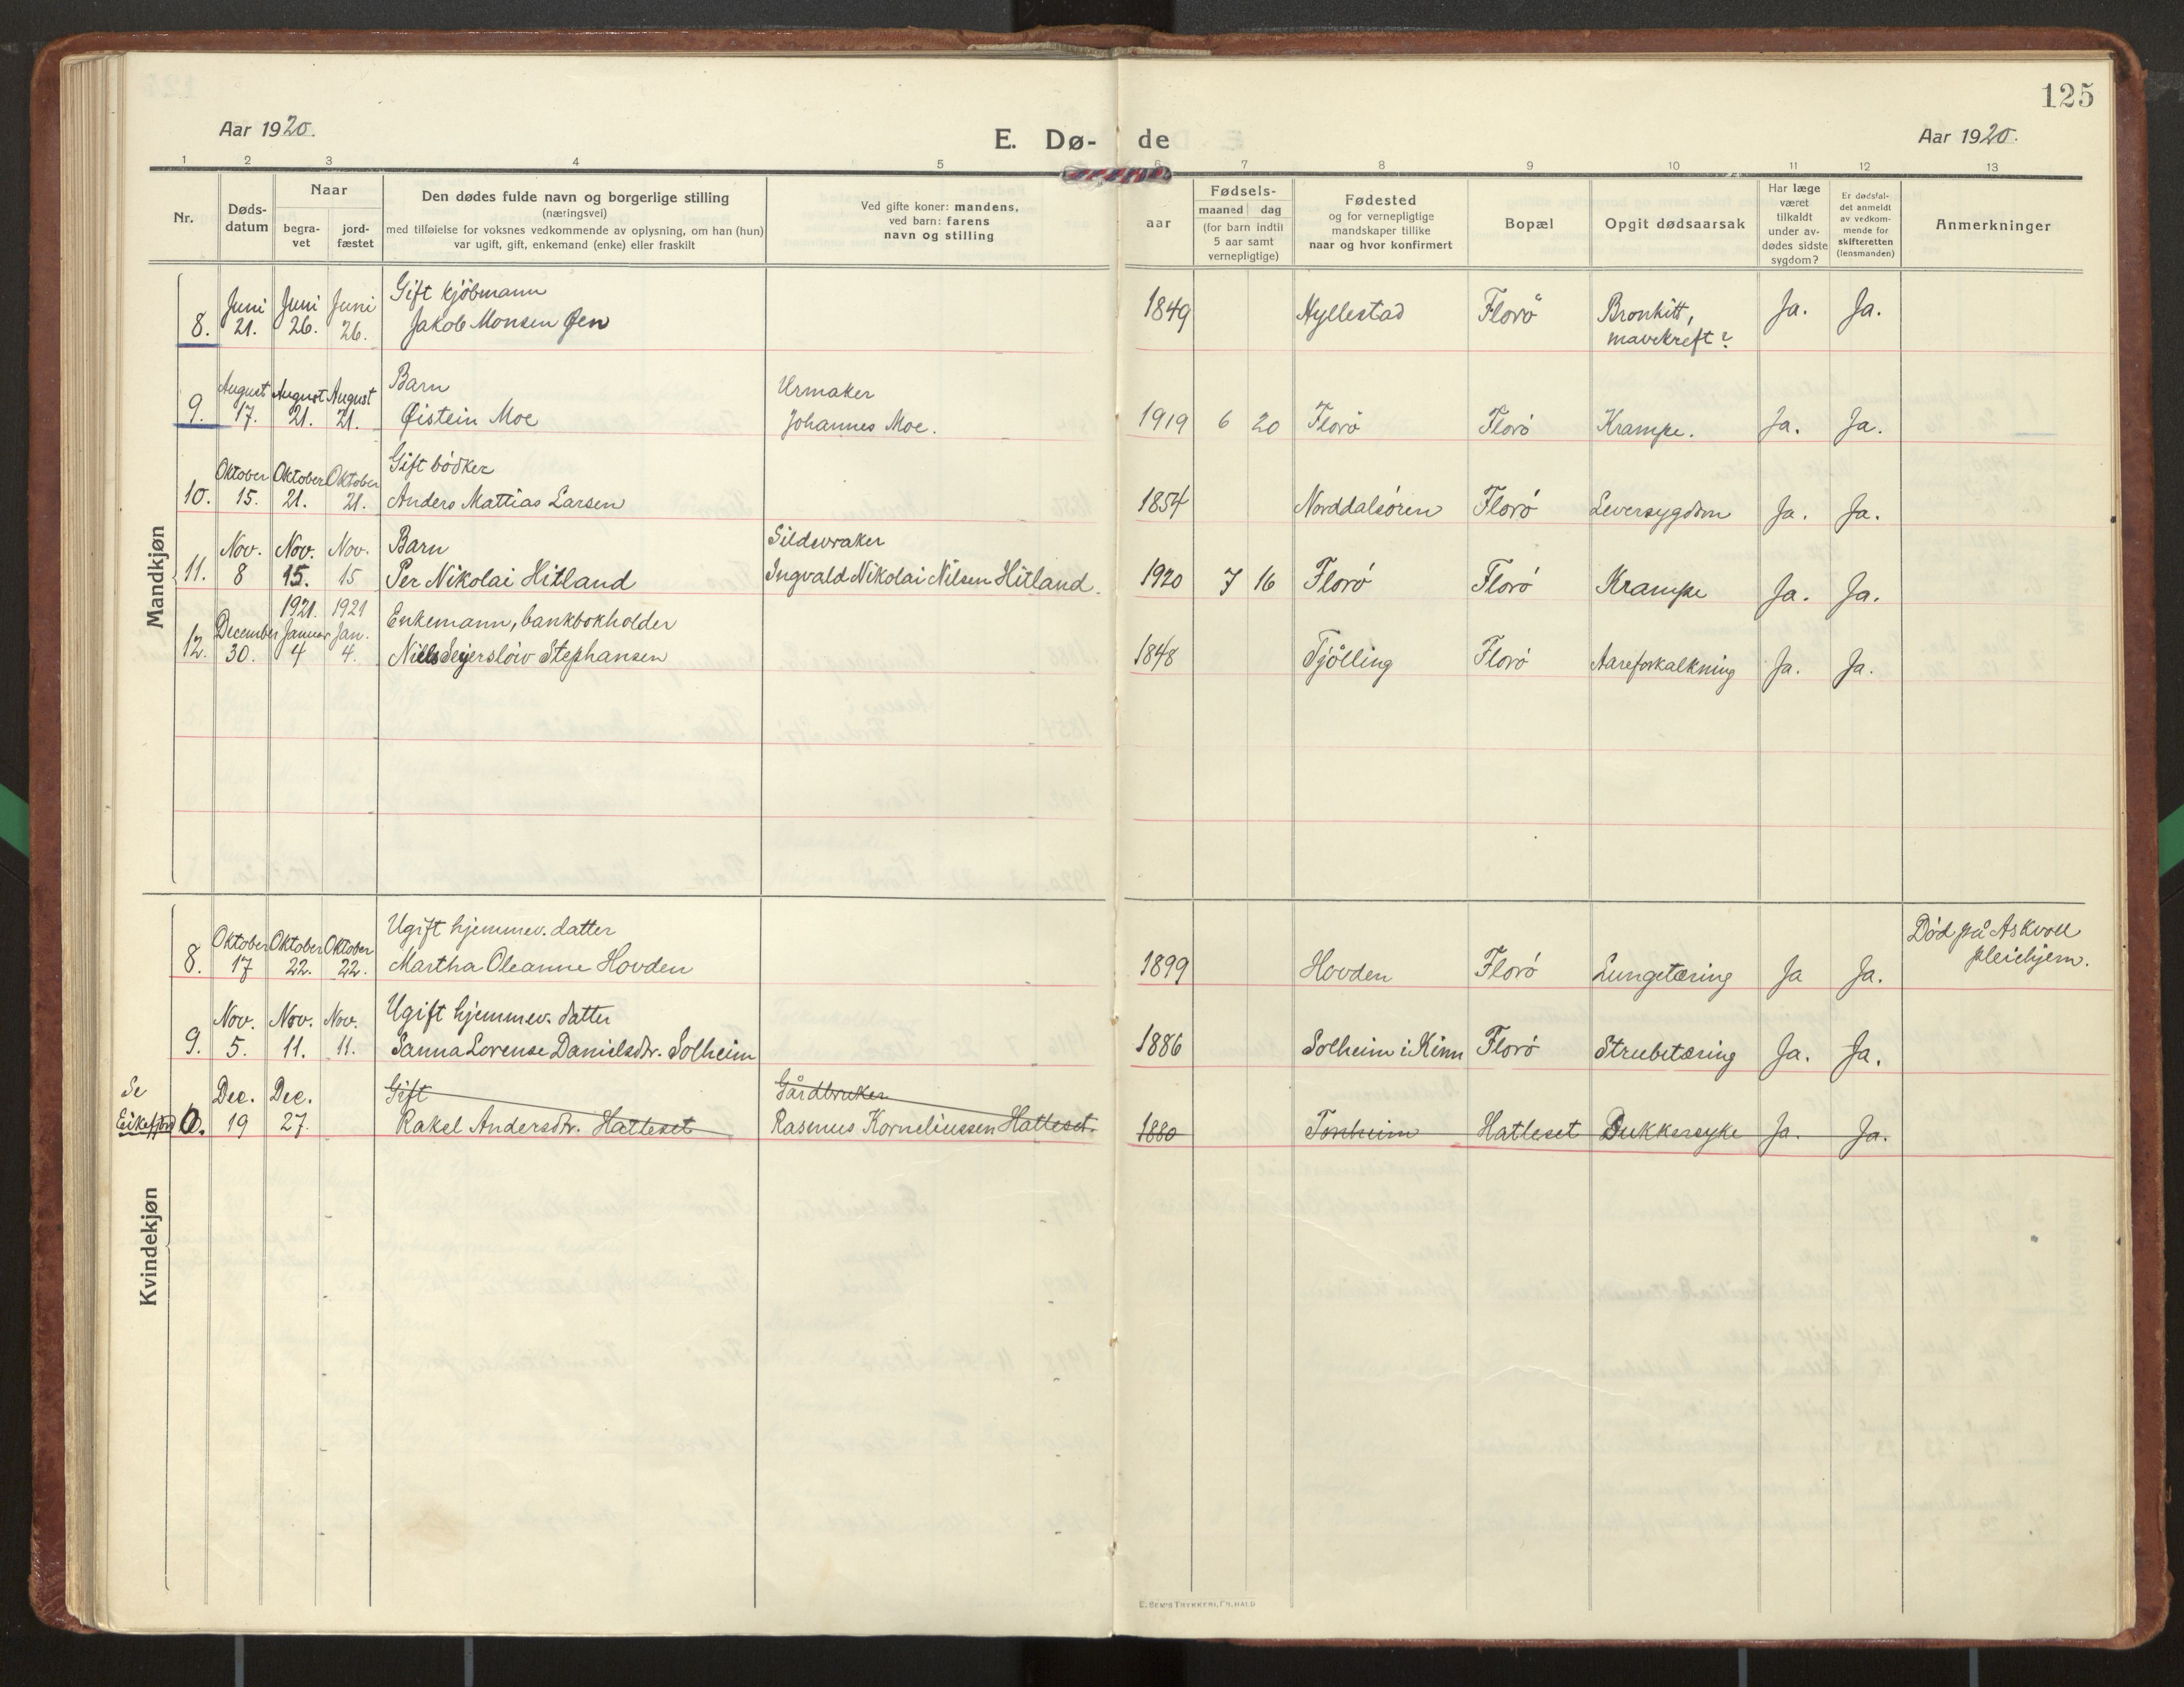 125
Aar 1920.
E. Dø- de
Aar 1920.
1 2 3 4 5 6 7 8 9 10 11 12 13
Nr.
Døds-
datum
Naar
begra-
vet
jord-
fæstet
Den dødes fulde navn og borgerlige stilling
(næringsvei)
med tilføielse for voksnes vedkommende av oplysning, om han (hun)
var ugift, gift, enkemand (enke) eller fraskilt
Ved gifte koner: mandens,
ved barn: farens
navn og stilling
Fødsels-
aar
maaned dag
(for barn indtil
5 aar samt
vernepligtige)
Fødested
og for vernepligtige
mandskaper tillike
naar og hvor konfirmert
Bopæl
Opgit dødsaarsak
Har læge
været
tilkaldt
under av-
dødes sidste
sygdom?
Er dødsfal-
det anmeldt
av vedkom-
mende for
skifteretten
(lensmanden)
Anmerkninger
Mandkjøn
Juni Juni Juni Gift kjøbmann
8. 21. 26. 26. Jakob Monsen Øen 1849 Hyllestad Florø Bronkitt, Ja. Ja.
mavekreft?
August August August Barn Urmaker
9. 17. 21. 21. Øistein Moe Johannes Moe. 1919 6 20 Florø Florø Krampe. Ja. Ja.
Oktober Oktober Oktober Gift bødker
10. 15. 21. 21. Anders Mattias Larsen 1854 Norddalsøren Florø Leversygdom Ja. Ja.
Nov. Nov. Nov. Barn Sildevraker
11. 8 15. 15 Per Nikolai Hitland Ingvald Nikolai Nilsen Hitland. 1920 7 16 Florø Florø Krampe Ja. Ja.
1921. 1921
December Januar Jan. Enkemann, bankbokholder
12. 30. 4 4. Niels Sejersløiv Stephansen 1848 Tjølling Florø Aareforkalkning Ja. Ja.
Kvindekjøn
Oktober Oktober Oktober Ugift hjemmev. datter Død på Askvoll
8. 17 22. 22. Martha Oleanne Hovden 1899 Hovden Florø Lungetæring Ja Ja. pleiehjem.
Nov. Nov. Nov. Ugift hjemmev. datter
9. 5. 11. 11. Sanna Lorense Danielsdtr. Solheim 1886 Solheim i Kinn Florø Strubetæring Ja. Ja.
Se Dec. Dec. Gift Gårdbruker
Eikefjord 19 27. Rakel Andersdtr. Hatleset Rasmus Korneliussen Hatleset. 1880 Tonheim Hatleset Sukkersyke Ja. Ja.
E. SEM'S TRYKKERI, FR.HALD